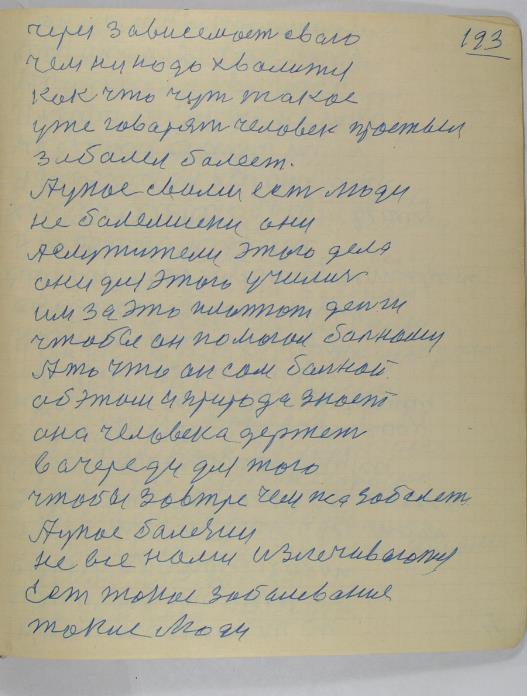 193
чери зависемост сваго
чем ни подо хволитя
как что чут такое
уже говарят человек простыл
забалел балеет.
А у нас свами ест люди
не балелшики они
а служители этого дела
они для этого училис
им за это плотют денги
чтобы он помогал балному
А то что он сам балной
об этом и природа знает
она человека держет
в очереди для того
чтобы завтре чем жа забалет
А у нас балезни
не все нами излечиваютя
Ест такие забалевания
такие люди